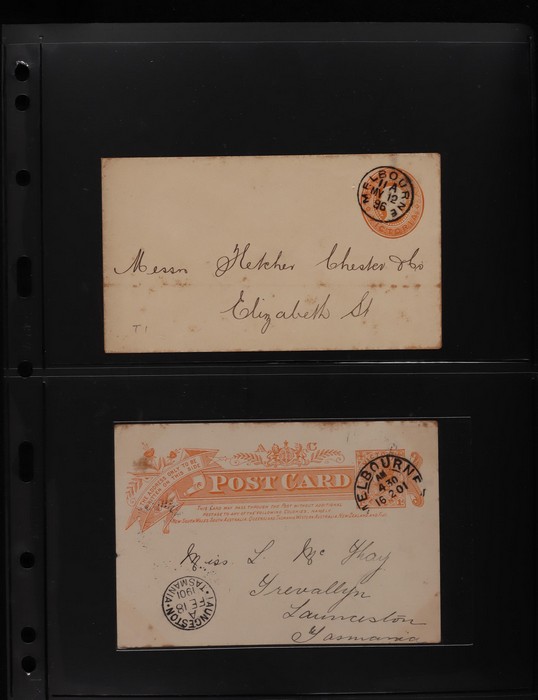 MELBOURNE
11 A
MY 12
96
VICTORIA
Messrs Fletcher Chester & Co
Elizabeth St
T1
THE ADDRESS ONLY TO BE
WRITTEN ON THIS SIDE
POST CARD
MELBOURNE
AM
4.30
16.2.01
THIS CARD MAY PASS THROUGH THE POST WITHOUT ADDITIONAL
POSTAGE TO ANY OF THE FOLLOWING COLONIES, NAMELY
NEW SOUTH WALES, SOUTH AUSTRALIA, QUEENSLAND, TASMANIA, WESTERN AUSTRALIA, NEW ZEALAND AND FIJI.
Miss. L. Mc
Trevallyn
Launceston
Tasmania
LAUNCESTON
A
FE 18
1901
TASMANIA